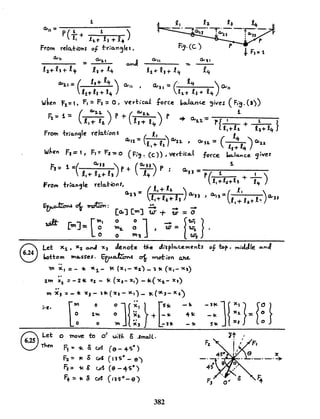 a11 = 1 / P(1/l1 + 1/(l2+l3+l4))
l1 l2 l3 l4
a13 a23 a33
P P
Fig. (C)
F3 = 1
From relations of triangles,
a11/(l2+l3+l4) = a21/(l3+l4) and a11/(l2+l3+l4) = a31/l4
a21 = ((l3+l4)/(l2+l3+l4)) a11 , a31 = (l4/(l2+l3+l4)) a11
When F2=1, F1 = F3 = 0, vertical force balance gives (Fig. (B))
F2 = 1 = (a22/(l1+l2)) P + (a22/(l3+l4)) P ⇒ a22 = 1 / P[1/(l1+l2) + 1/(l3+l4)]
From triangle relations
a12 = (l1/(l1+l2)) a22 , a32 = (l4/(l3+l4)) a22
When F3=1, F1 = F2 = 0 (Fig. (C)), vertical force balance gives
F3 = 1 = (a33/(l1+l2+l3)) P + (a33/l4) P ; a33 = 1 / P(1/(l1+l2+l3) + 1/l4)
From triangle relations,
a23 = ((l1+l2)/(l1+l2+l3)) a33 , a13 = (l1/(l1+l2+l3)) a33
Equations of motion:
[a] [m] ẅ + w = 0
with [m] = [m1 0 0 0 m2 0 0 0 m3] , w = {w1 w2 w3}
6.24 Let x1, x2 and x3 denote the displacements of top, middle and
bottom masses. Equations of motion are
m ẍ1 = - k x2 - k (x1-x2) - 3k (x1-x3)
2m ẍ2 = - 2k x2 - k (x2-x1) - k (x2-x3)
m ẍ3 = - k x3 - 3k (x3-x1) - k (x3-x2)
i.e. [m 0 0 0 2m 0 0 0 m] {ẍ1 ẍ2 ẍ3} + [5k -k -3k -k 4k -k -3k -k 5k] {x1 x2 x3} = {0 0 0}
6.25 Let 0 move to 0' with δ small.
Then F1 = k δ cos (θ - 45°)
F2 = k δ cos (135° - θ)
F3 = k δ cos (θ - 45°)
F4 = k δ cos (135° - θ)
y
F2 F1
45° θ x
F3 0' δ F4
382